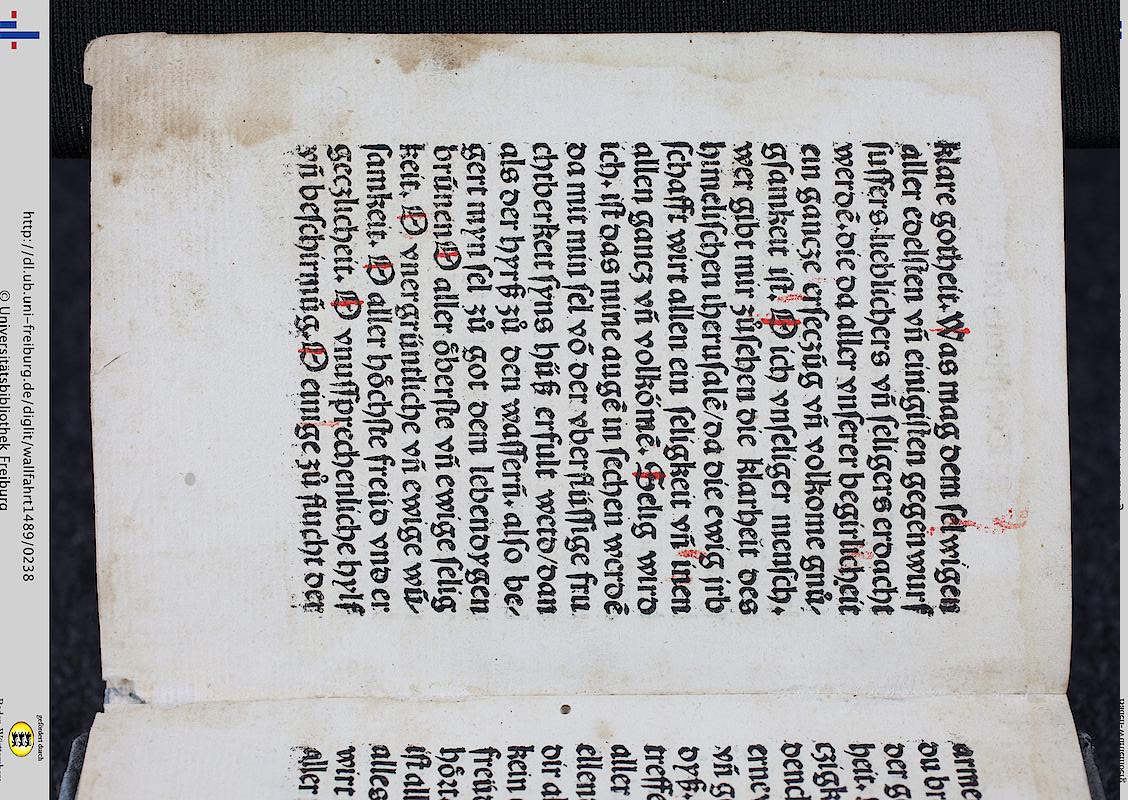 klare gotheit. Was mag dem ſel wigen
aller edelſten vñ einigiſten gegenwurf
ſuſſers. lieblichers vñ ſeligers erdacht
werdē. die da aller vnſerer begirlicheit
ein gancze erſeczūg vñ volkome gnů/
gſamkeit iſt. O ich vnſeliger menſch.
wer gibt mir zů ſehen die klarheit des
himeliſchen iheruſalē/da die ewig irb
ſchafft wirt allen ein ſeligkeit vñ inen
allen gancz vñ volkōmē. Selig wird
ich. iſt das mine augē in ſechen werdē
da mit min ſel vō der vberflüſſige fru
chtberkeit ſyns hůß erfult werd/dan
als der hyrß zů den waſſern. alſo be/
gert myn ſel zů got dem lebendygen
brūnen O aller öberſte vñ ewige ſelig
keit. O vnergrüntliche vñ ewige wū/
ſamkeit. O aller höchſte freüd vnd er
geczlicheit. O vnuſſprechenliche hylf
vñ beſchirmūg. O einige zů flucht der
arme
du br
der g
heit.
czigk
dend
erne
vñ g
dyß.
treffe
aller
ellen
dir a
kein
freüt
hört.
iſt all
alles
wirt
aller
http://dl.ub.uni-freiburg.de/diglit/wallfahrt1489/0238
© Universitätsbibliothek Freiburg
gefördert durch